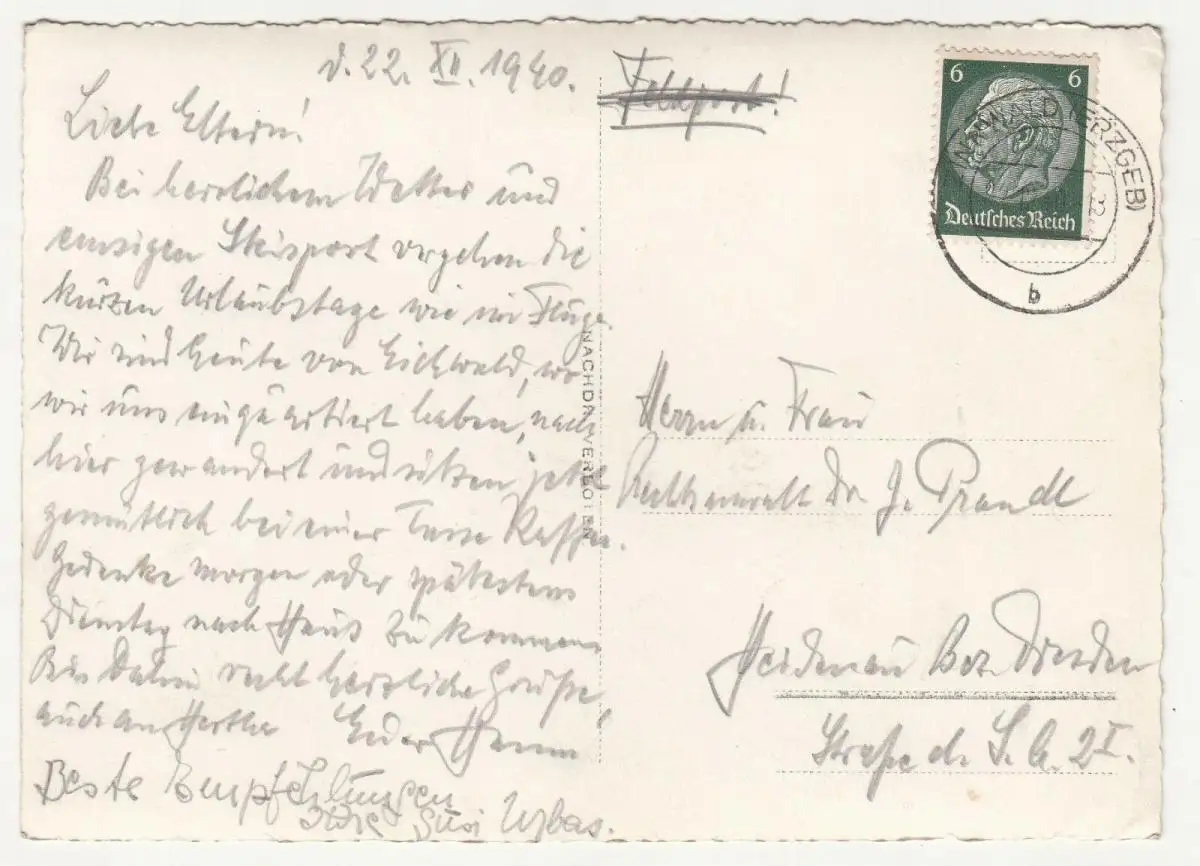 d. 22. XII. 1940.
Liebe Eltern!
Bei herrlichem Wetter und
emsigen Skisport vergehen die
kurzen Urlaubstage wie im Fluge.
Wir sind heute von Eichwald, wo
wir uns einquartiert haben, nach
hier gewandert und sitzen jetzt
gemütlich bei einer Tasse Kaffee.
Gedenke morgen oder spätestens
Dienstag nach Haus zu kommen.
Bis dahin recht herzliche Grüße,
auch an Hertha Euer
Beste Empfehlungen
Ihre Susi
Feldpost!
6 6
Deutsches Reich
WALD (ERZGEB)
22
b
NACHDR. VERBOTEN
Herrn u. Frau
Rechtsanwalt Dr. J. Prandl
Heidenau Bez. Dresden
Straße d. S. A. 2 I.